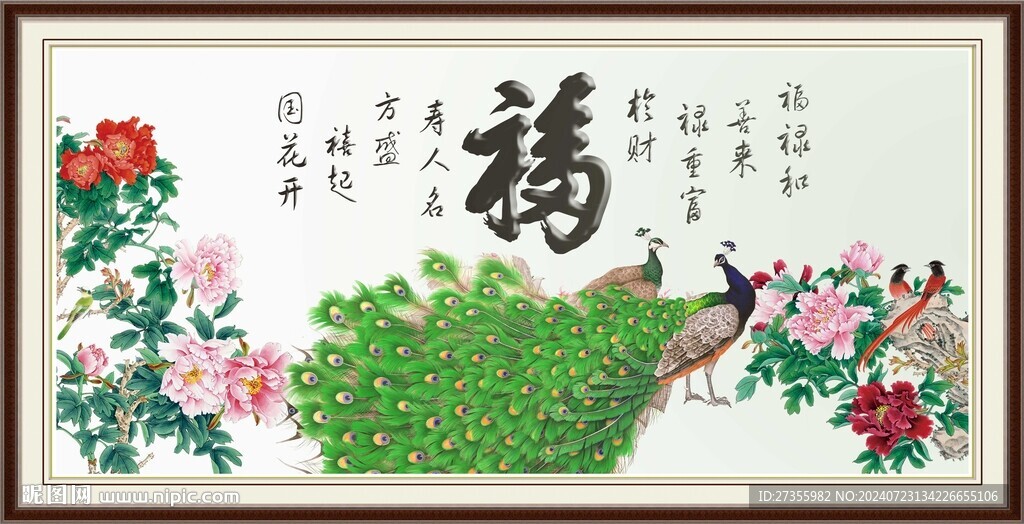 福禄和
善来
禄重富
於财
福
寿人名
方盛
禧起
国花开
昵图网 www.nipic.com
ID:27355982 NO:20240723134226655106